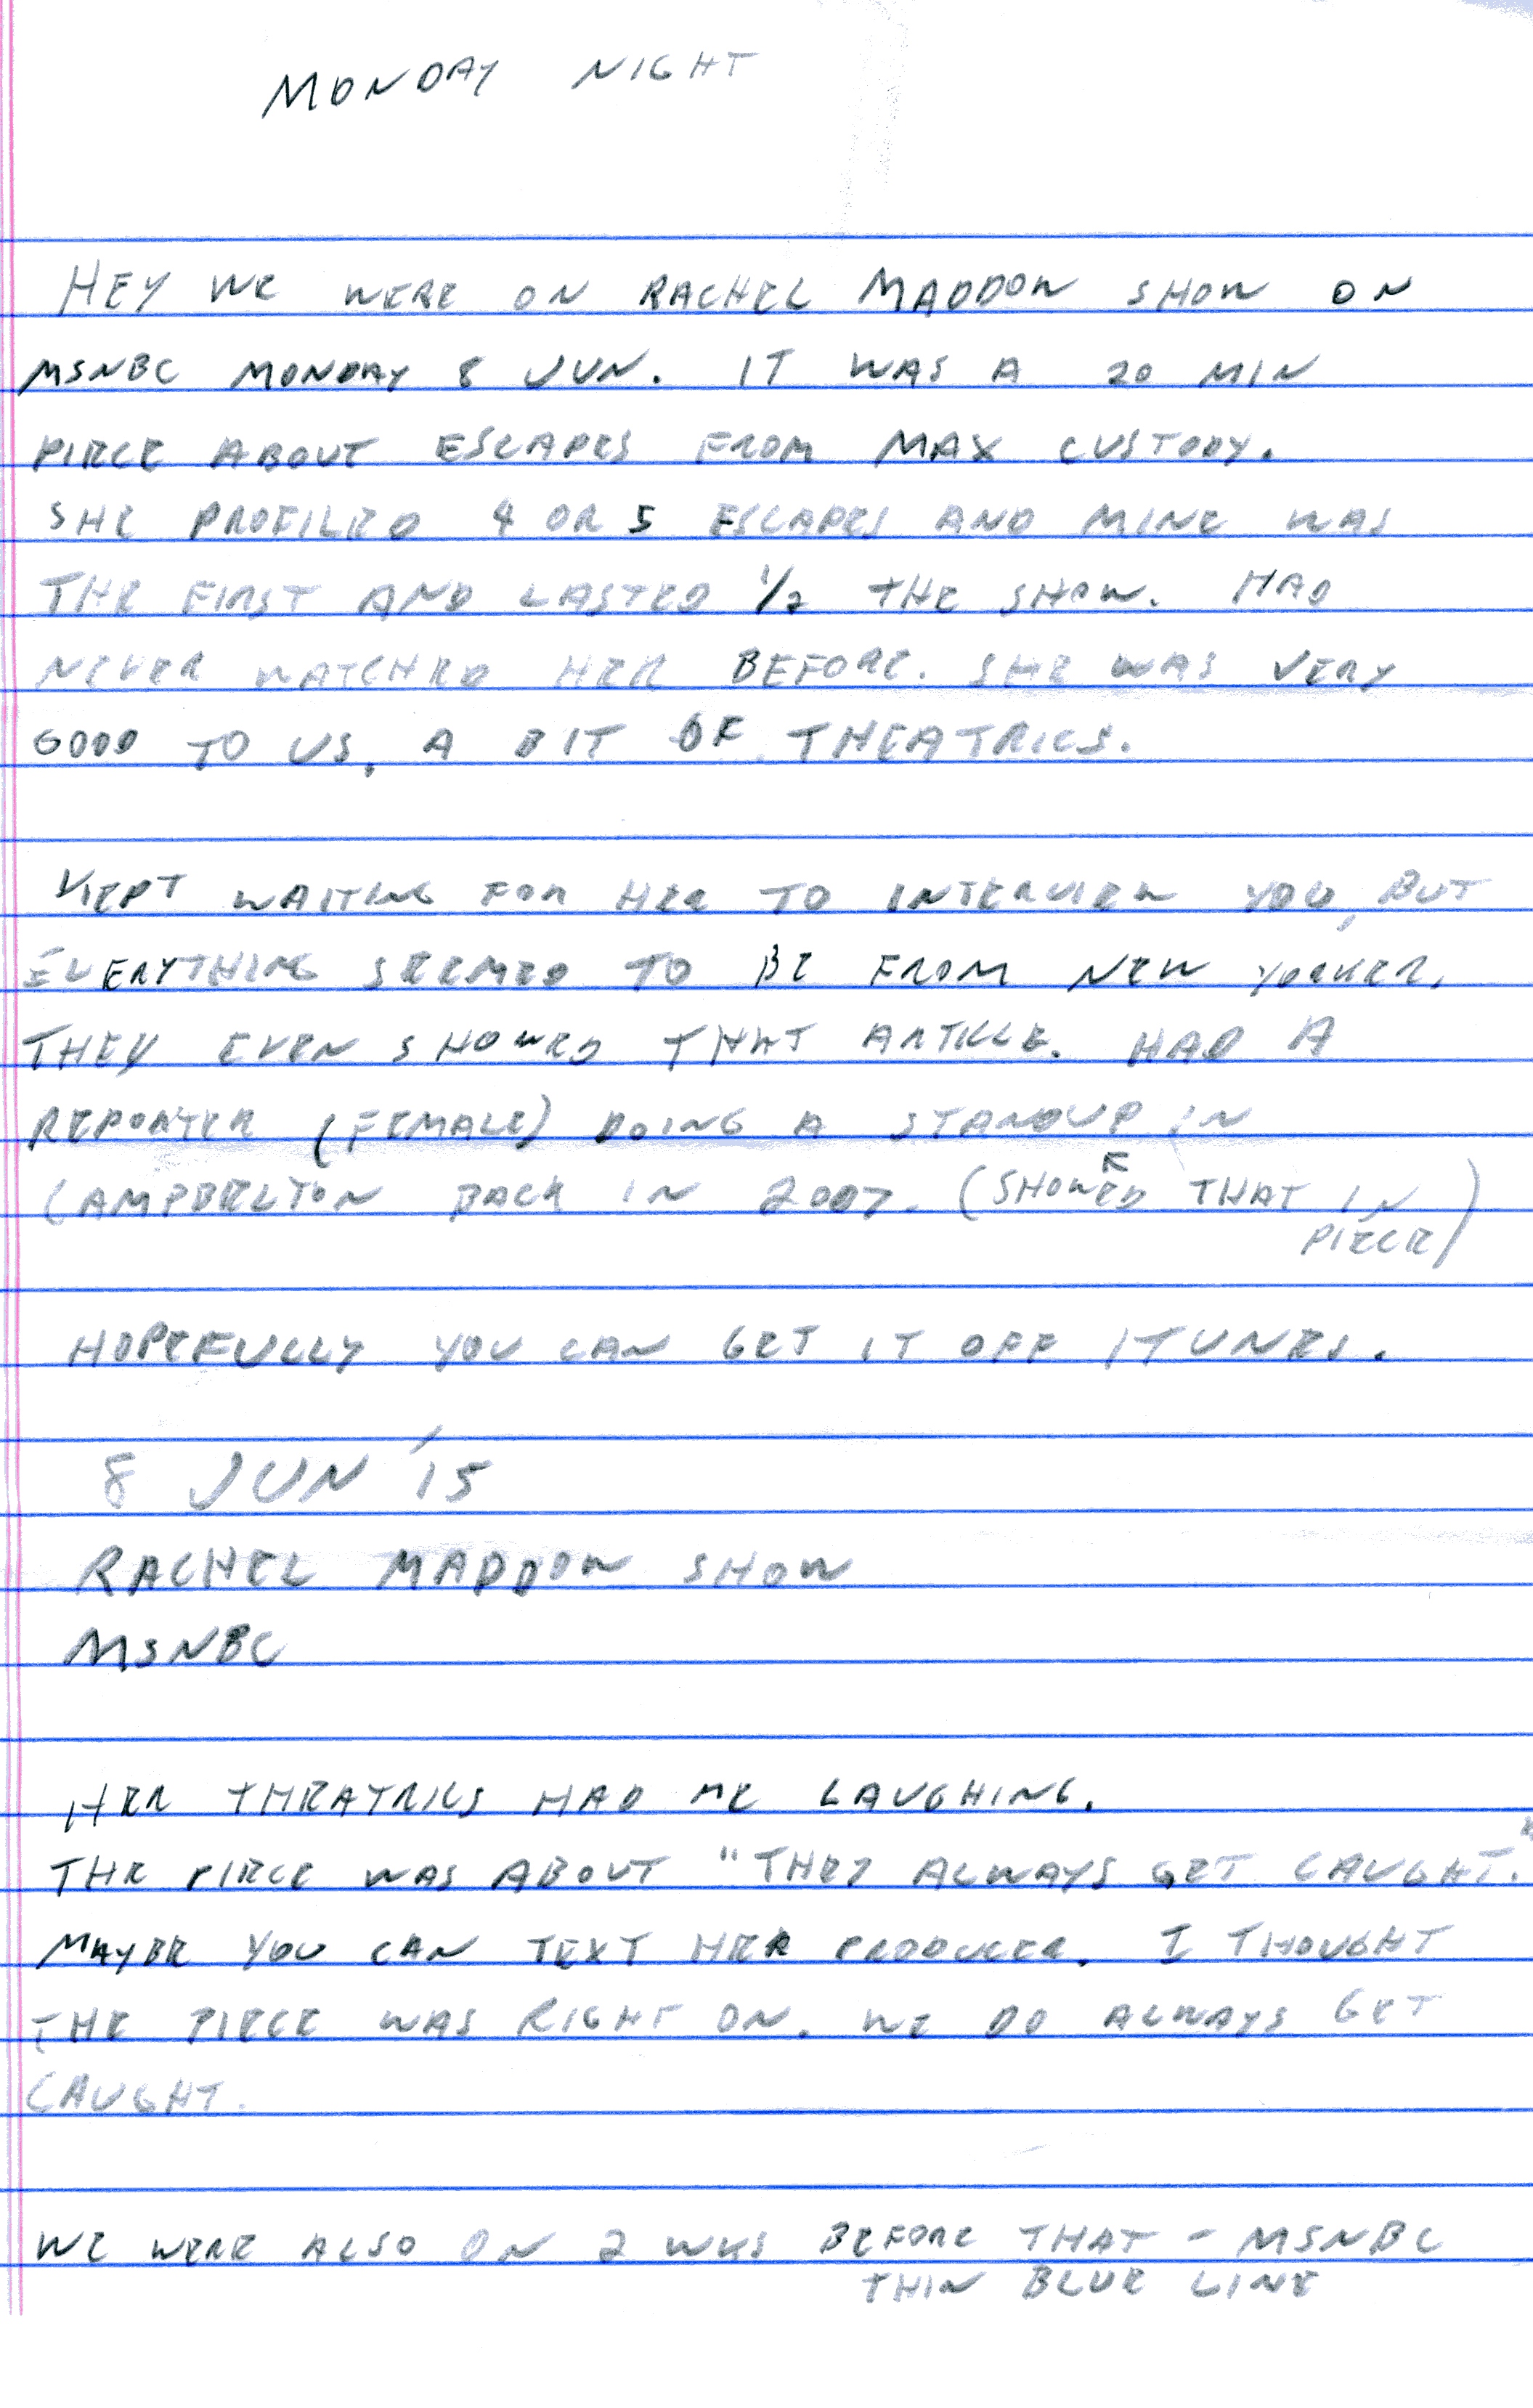 MONDAY NIGHT
HEY WE WERE ON RACHEL MADDOW SHOW ON
MSNBC MONDAY 8 JUN. IT WAS A 20 MIN
PIECE ABOUT ESCAPES FROM MAX CUSTODY.
SHE PROFILED 4 OR 5 ESCAPES AND MINE WAS
THE FIRST AND LASTED 1/2 THE SHOW. HAD
NEVER WATCHED HER BEFORE. SHE WAS VERY
GOOD TO US, A BIT OF THEATRICS.
KEPT WAITING FOR HER TO INTERVIEW YOU, BUT
EVERYTHING SEEMED TO BE FROM NEW YORKER,
THEY EVEN SHOWED THAT ARTICLE. HAD A
REPORTER (FEMALE) DOING A STANDUP IN
LAMPBELTON BACK IN 2007. (SHOWED THAT IN
PIECE)
HOPEFULLY YOU CAN GET IT OFF ITUNES.
8 JUN '15
RACHEL MADDOW SHOW
MSNBC
HER THEATRICS HAD ME LAUGHING.
THE PIECE WAS ABOUT "THEY ALWAYS GET CAUGHT."
MAYBE YOU CAN TEXT HER PRODUCER. I THOUGHT
THE PIECE WAS RIGHT ON. WE DO ALWAYS GET
CAUGHT.
WE WERE ALSO ON 2 WKS BEFORE THAT - MSNBC
THIN BLUE LINE